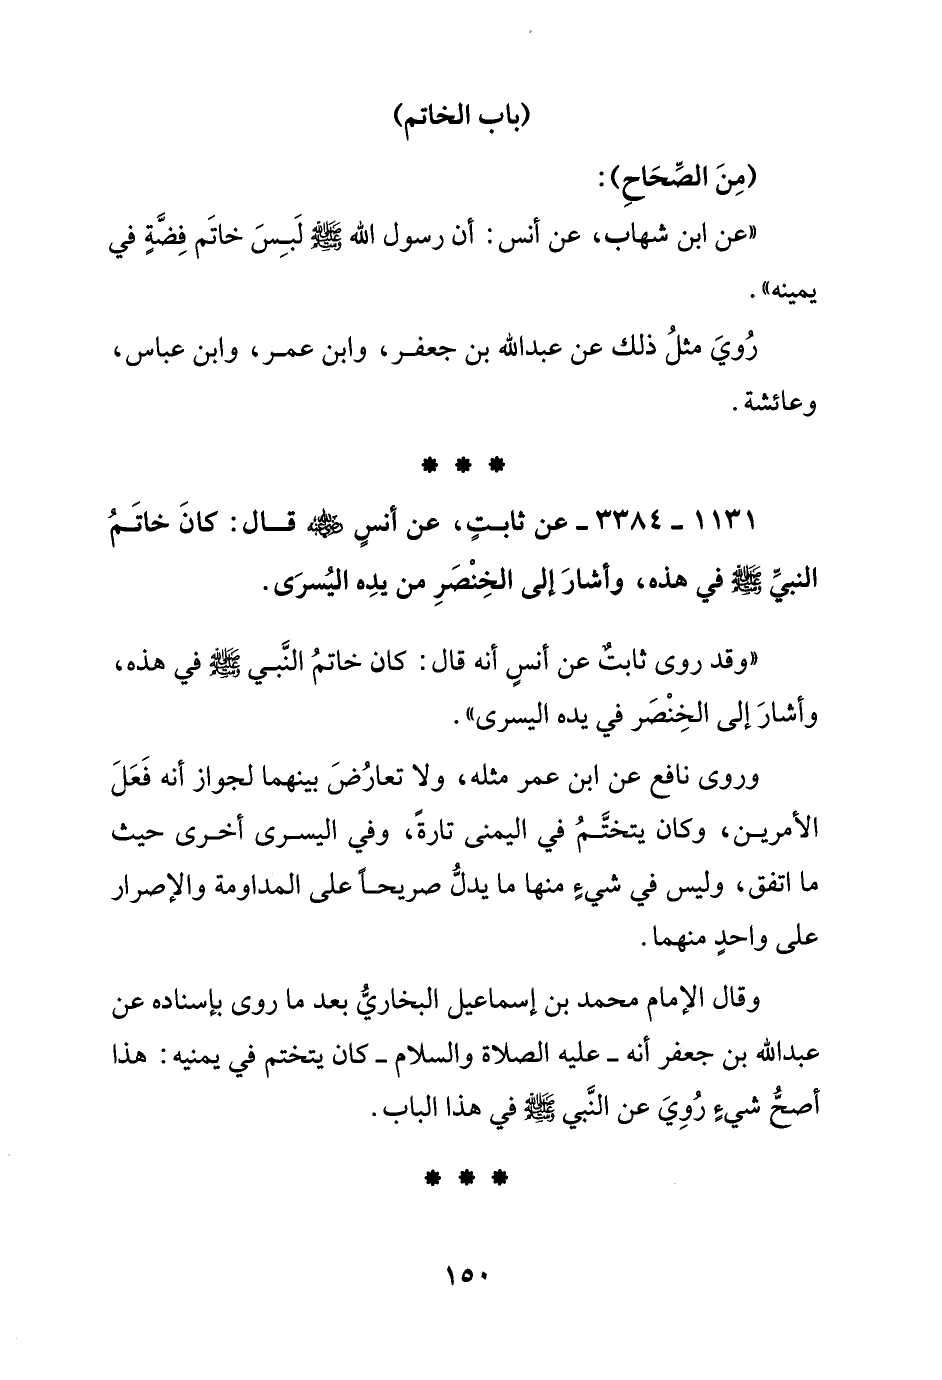 (باب الخاتم)
(مِنَ الصِّحَاحِ):
«عن ابن شهاب، عن أنس: أن رسول الله ﷺ لَبِسَ خاتَم فِضَّةٍ في
يمينه».
رُويَ مثلُ ذلك عن عبدالله بن جعفر، وابن عمر، وابن عباس،
وعائشة.
* * *
١١٣١ ـ ٣٣٨٤ ـ عن ثابتٍ، عن أنسٍ رضي الله عنه قال: كانَ خاتَمُ
النبيِّ ﷺ في هذه، وأشارَ إلى الخِنْصَرِ من يدِه اليُسرَى.
«وقد روى ثابتٌ عن أنسٍ أنه قال: كان خاتمُ النَّبي ﷺ في هذه،
وأشارَ إلى الخِنْصَر في يده اليسرى».
وروى نافع عن ابن عمر مثله، ولا تعارُضَ بينهما لجواز أنه فَعَلَ
الأمرين، وكان يتختَّمُ في اليمنى تارةً، وفي اليسرى أخرى حيث
ما اتفق، وليس في شيءٍ منها ما يدلُّ صريحاً على المداومة والإصرار
على واحدٍ منهما.
وقال الإمام محمد بن إسماعيل البخاريُّ بعد ما روى بإسناده عن
عبدالله بن جعفر أنه ـ عليه الصلاة والسلام ـ كان يتختم في يمنيه: هذا
أصحُّ شيءٍ رُوِيَ عن النَّبي ﷺ في هذا الباب.
* * *
١٥٠